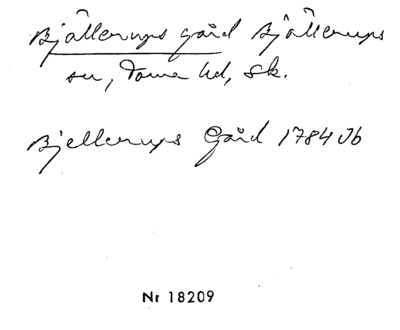 Bjällerups gård Bjällerups
sn, Torna hd, Sk.
Bjellerups Gård 1784 Jb
Nr 18209